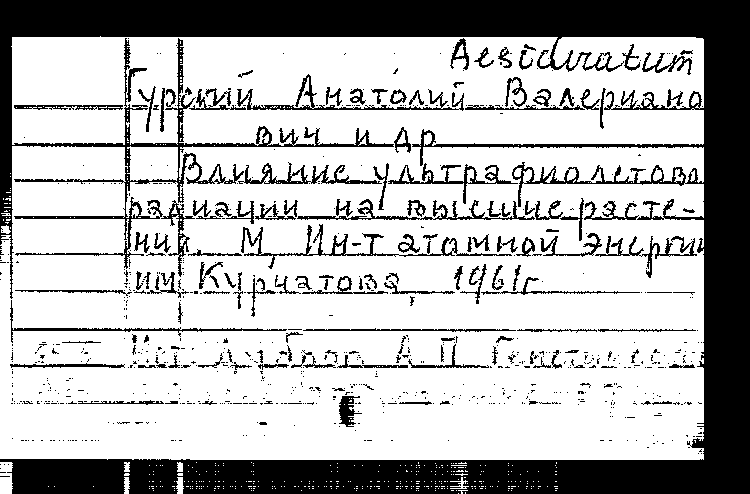 Desideratum
Гурский Анатолий Валериано
вич и др
Влияние ультрафиолетово
радиации на высшие расте-
ния. М, Ин-т атомной энергии
им Курчатова, 1961г
Ист: Дубров А П Генетические